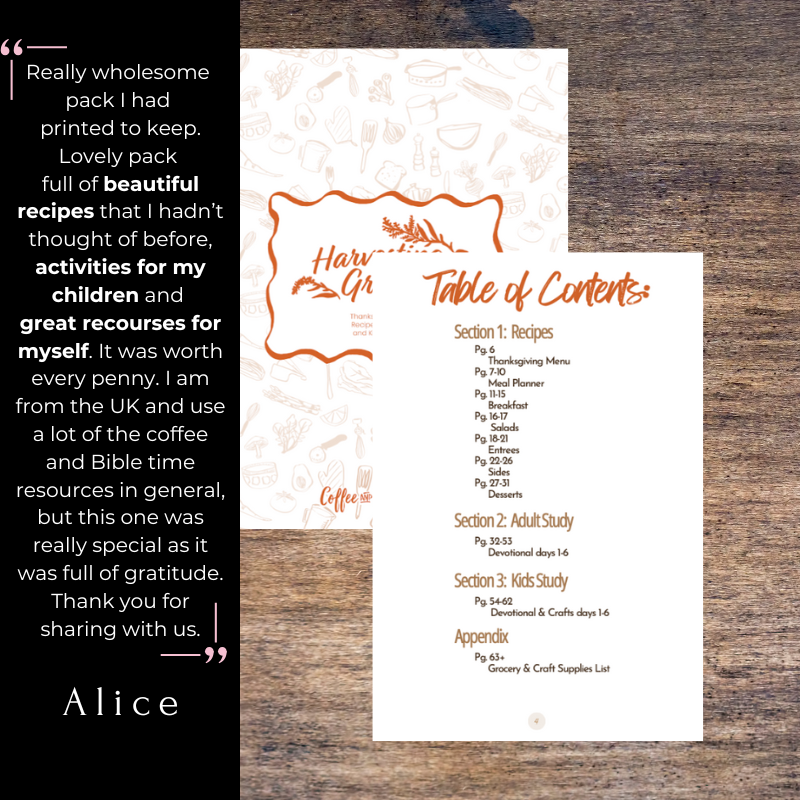 Really wholesome
pack I had
printed to keep.
Lovely pack
full of beautiful
recipes that I hadn't
thought of before,
activities for my
children and
great recourses for
myself. It was worth
every penny. I am
from the UK and use
a lot of the coffee
and Bible time
resources in general,
but this one was
really special as it
was full of gratitude.
Thank you for
sharing with us.
Alice
Coffee AND
Table of Contents:
Section 1: Recipes
Pg. 6
Thanksgiving Menu
Pg. 7-10
Meal Planner
Pg. 11-15
Breakfast
Pg. 16-17
Salads
Pg. 18-21
Entrees
Pg. 22-26
Sides
Pg. 27-31
Desserts
Section 2: Adult Study
Pg. 32-53
Devotional days 1-6
Section 3: Kids Study
Pg. 54-62
Devotional & Crafts days 1-6
Appendix
Pg. 63+
Grocery & Craft Supplies List
4